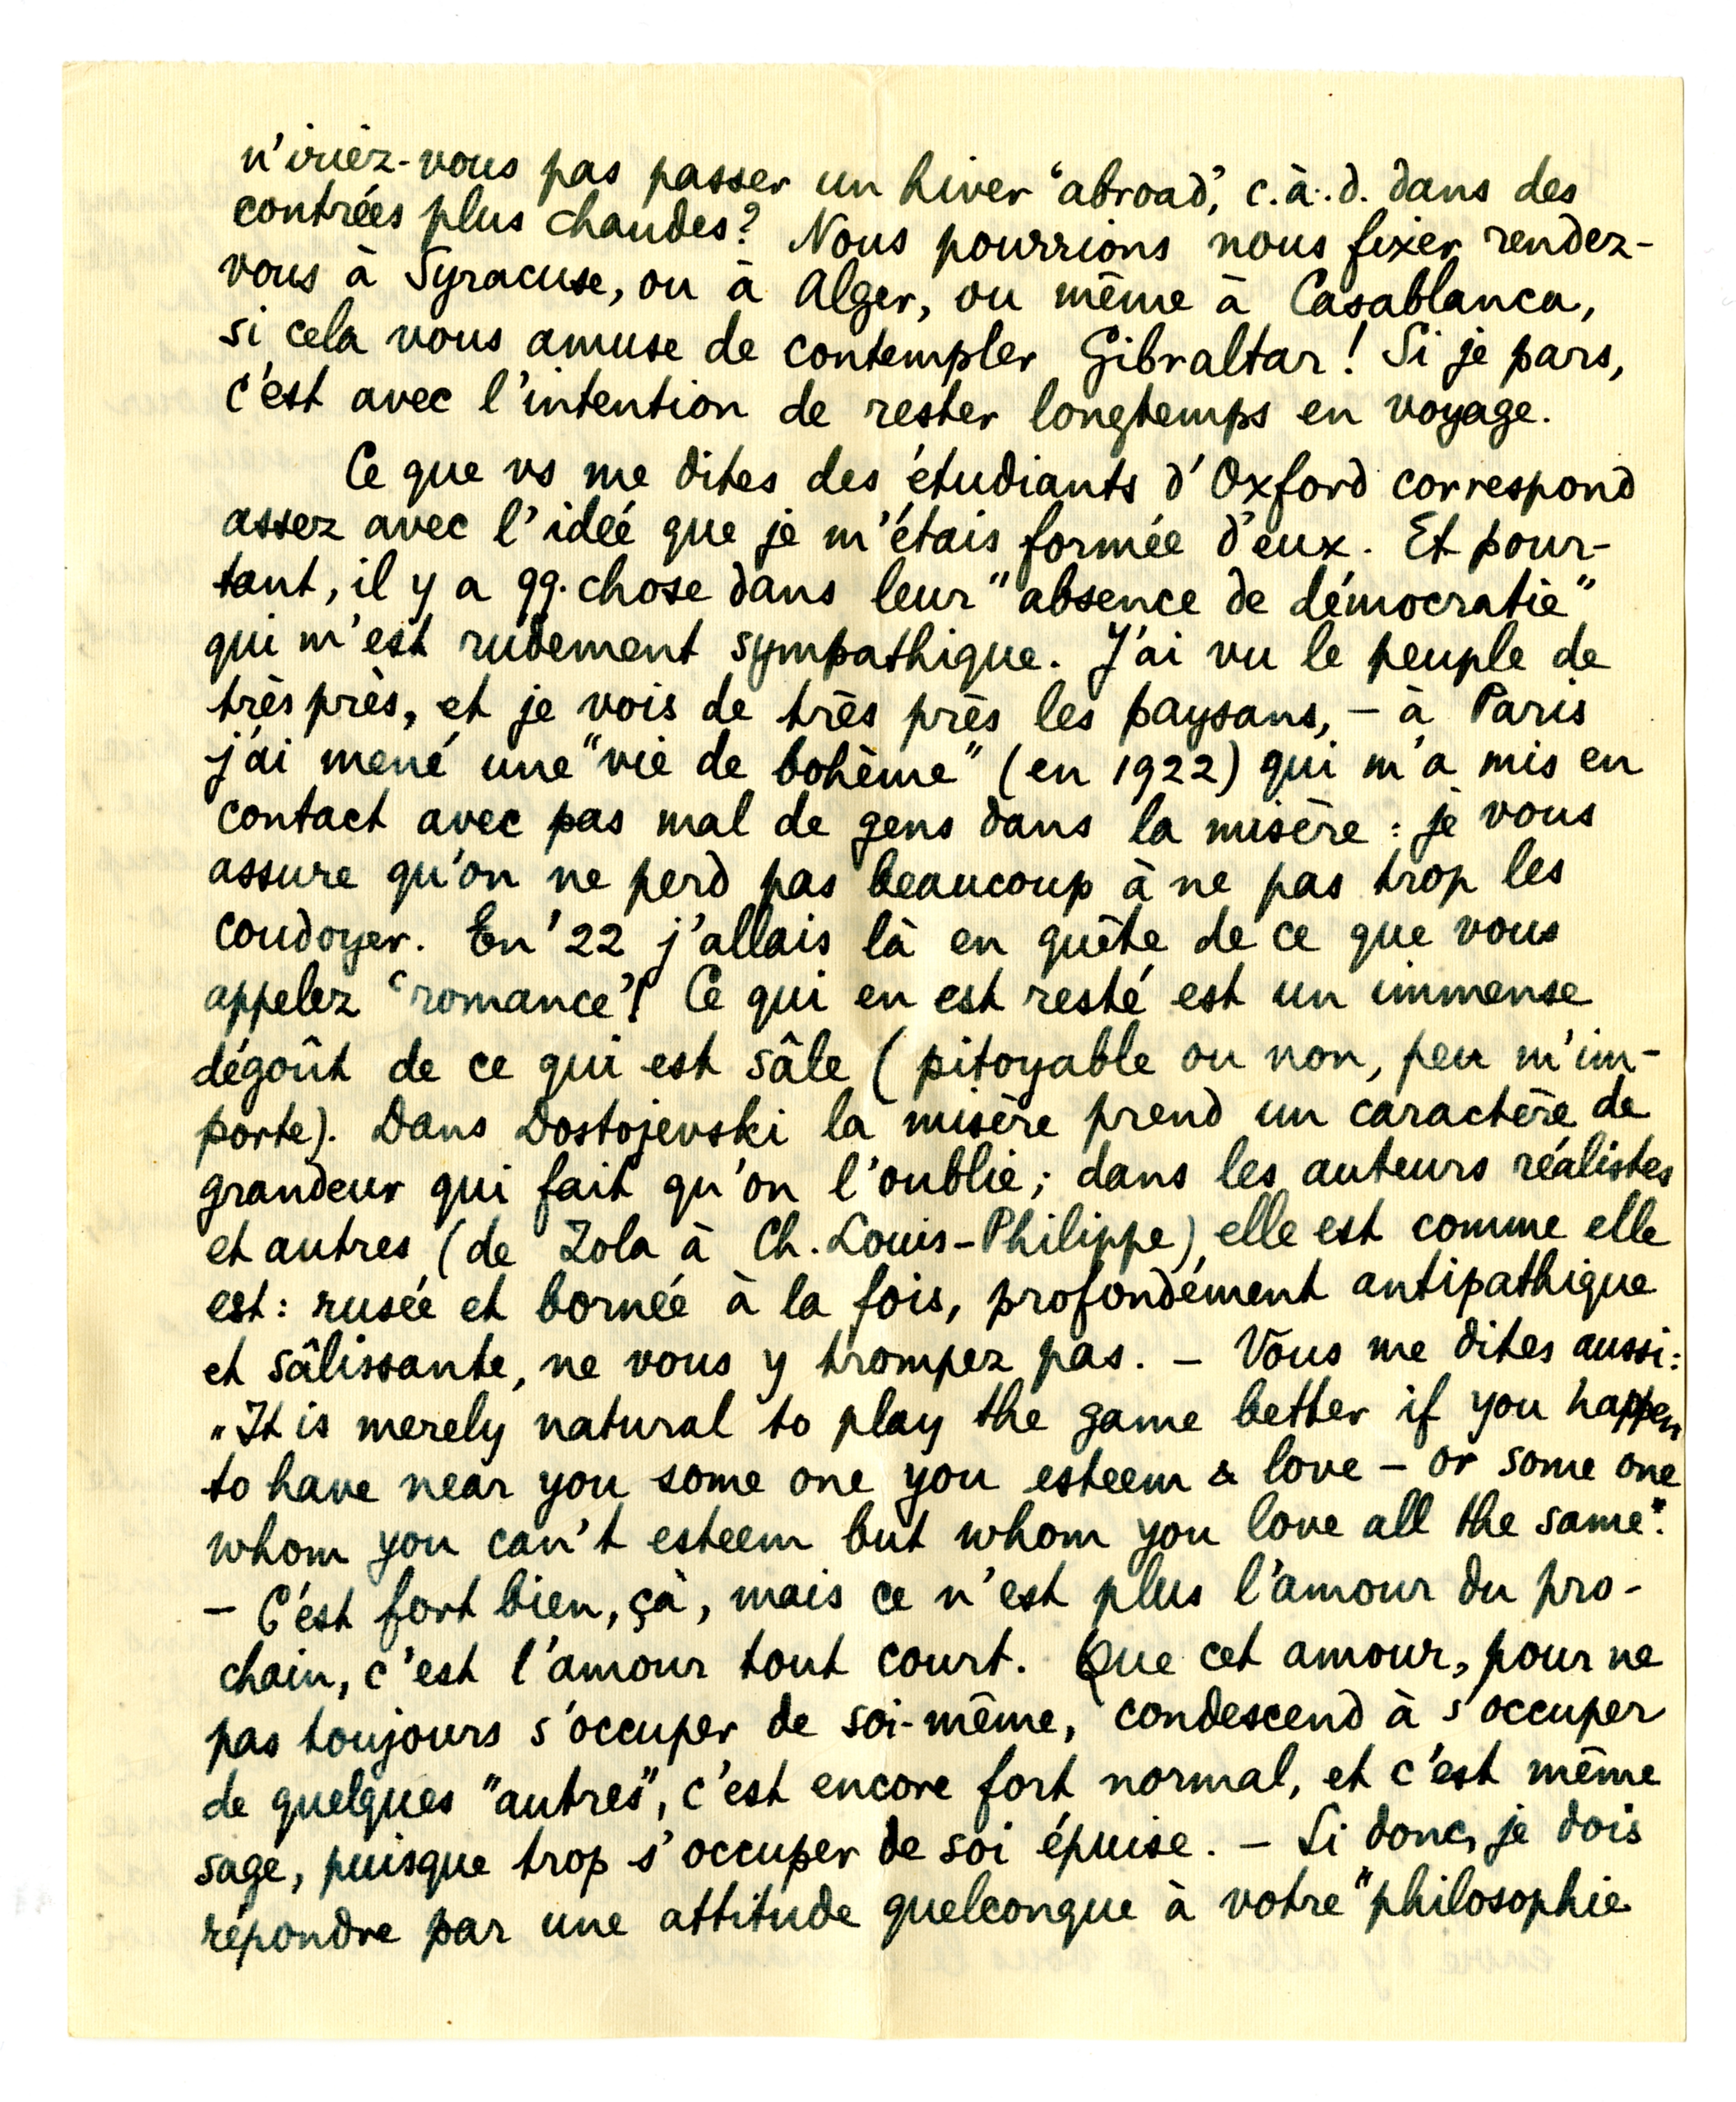 n'iriez-vous pas passer un hiver 'abroad', c.à.d. dans des
contrées plus chaudes? Nous pourrions nous fixer rendez-
vous à Syracuse, ou à Alger, ou même à Casablanca,
si cela vous amuse de contempler Gibraltar! Si je pars,
c'est avec l'intention de rester longtemps en voyage.
Ce que vs me dites des étudiants d'Oxford correspond
assez avec l'idée que je m'étais formée d'eux. Et pour-
tant, il y a qq. chose dans leur "absence de démocratie"
qui m'est rudement sympathique. J'ai vu le peuple de
très près, et je vois de très près les paysans, – à Paris
j'ai mené une "vie de bohème" (en 1922) qui m'a mis en
contact avec pas mal de gens dans la misère: je vous
assure qu'on ne perd pas beaucoup à ne pas trop les
coudoyer. En '22 j'allais là en quête de ce que vous
appelez 'romance'! Ce qui en est resté est un immense
dégoût de ce qui est sâle (pitoyable ou non, peu m'im-
porte). Dans Dostojevski la misère prend un caractère de
grandeur qui fait qu'on l'oublie; dans les auteurs réalistes
et autres (de Zola à Ch. Louis-Philippe) elle est comme elle
est: rusée et bornée à la fois, profondément antipathique
et sâlissante, ne vous y trompez pas. – Vous me dites aussi:
„It is merely natural to play the game better if you happen
to have near you some one you esteem & love – or some one
whom you can't esteem but whom you love all the same".
– C'est fort bien, çà, mais ce n'est plus l'amour du pro-
chain, c'est l'amour tout court. Que cet amour, pour ne
pas toujours s'occuper de soi-même, condescend à s'occuper
de quelques "autres", c'est encore fort normal, et c'est même
sage, puisque trop s'occuper de soi épuise. – Si donc, je dois
répondre par une attitude quelconque à votre "philosophie